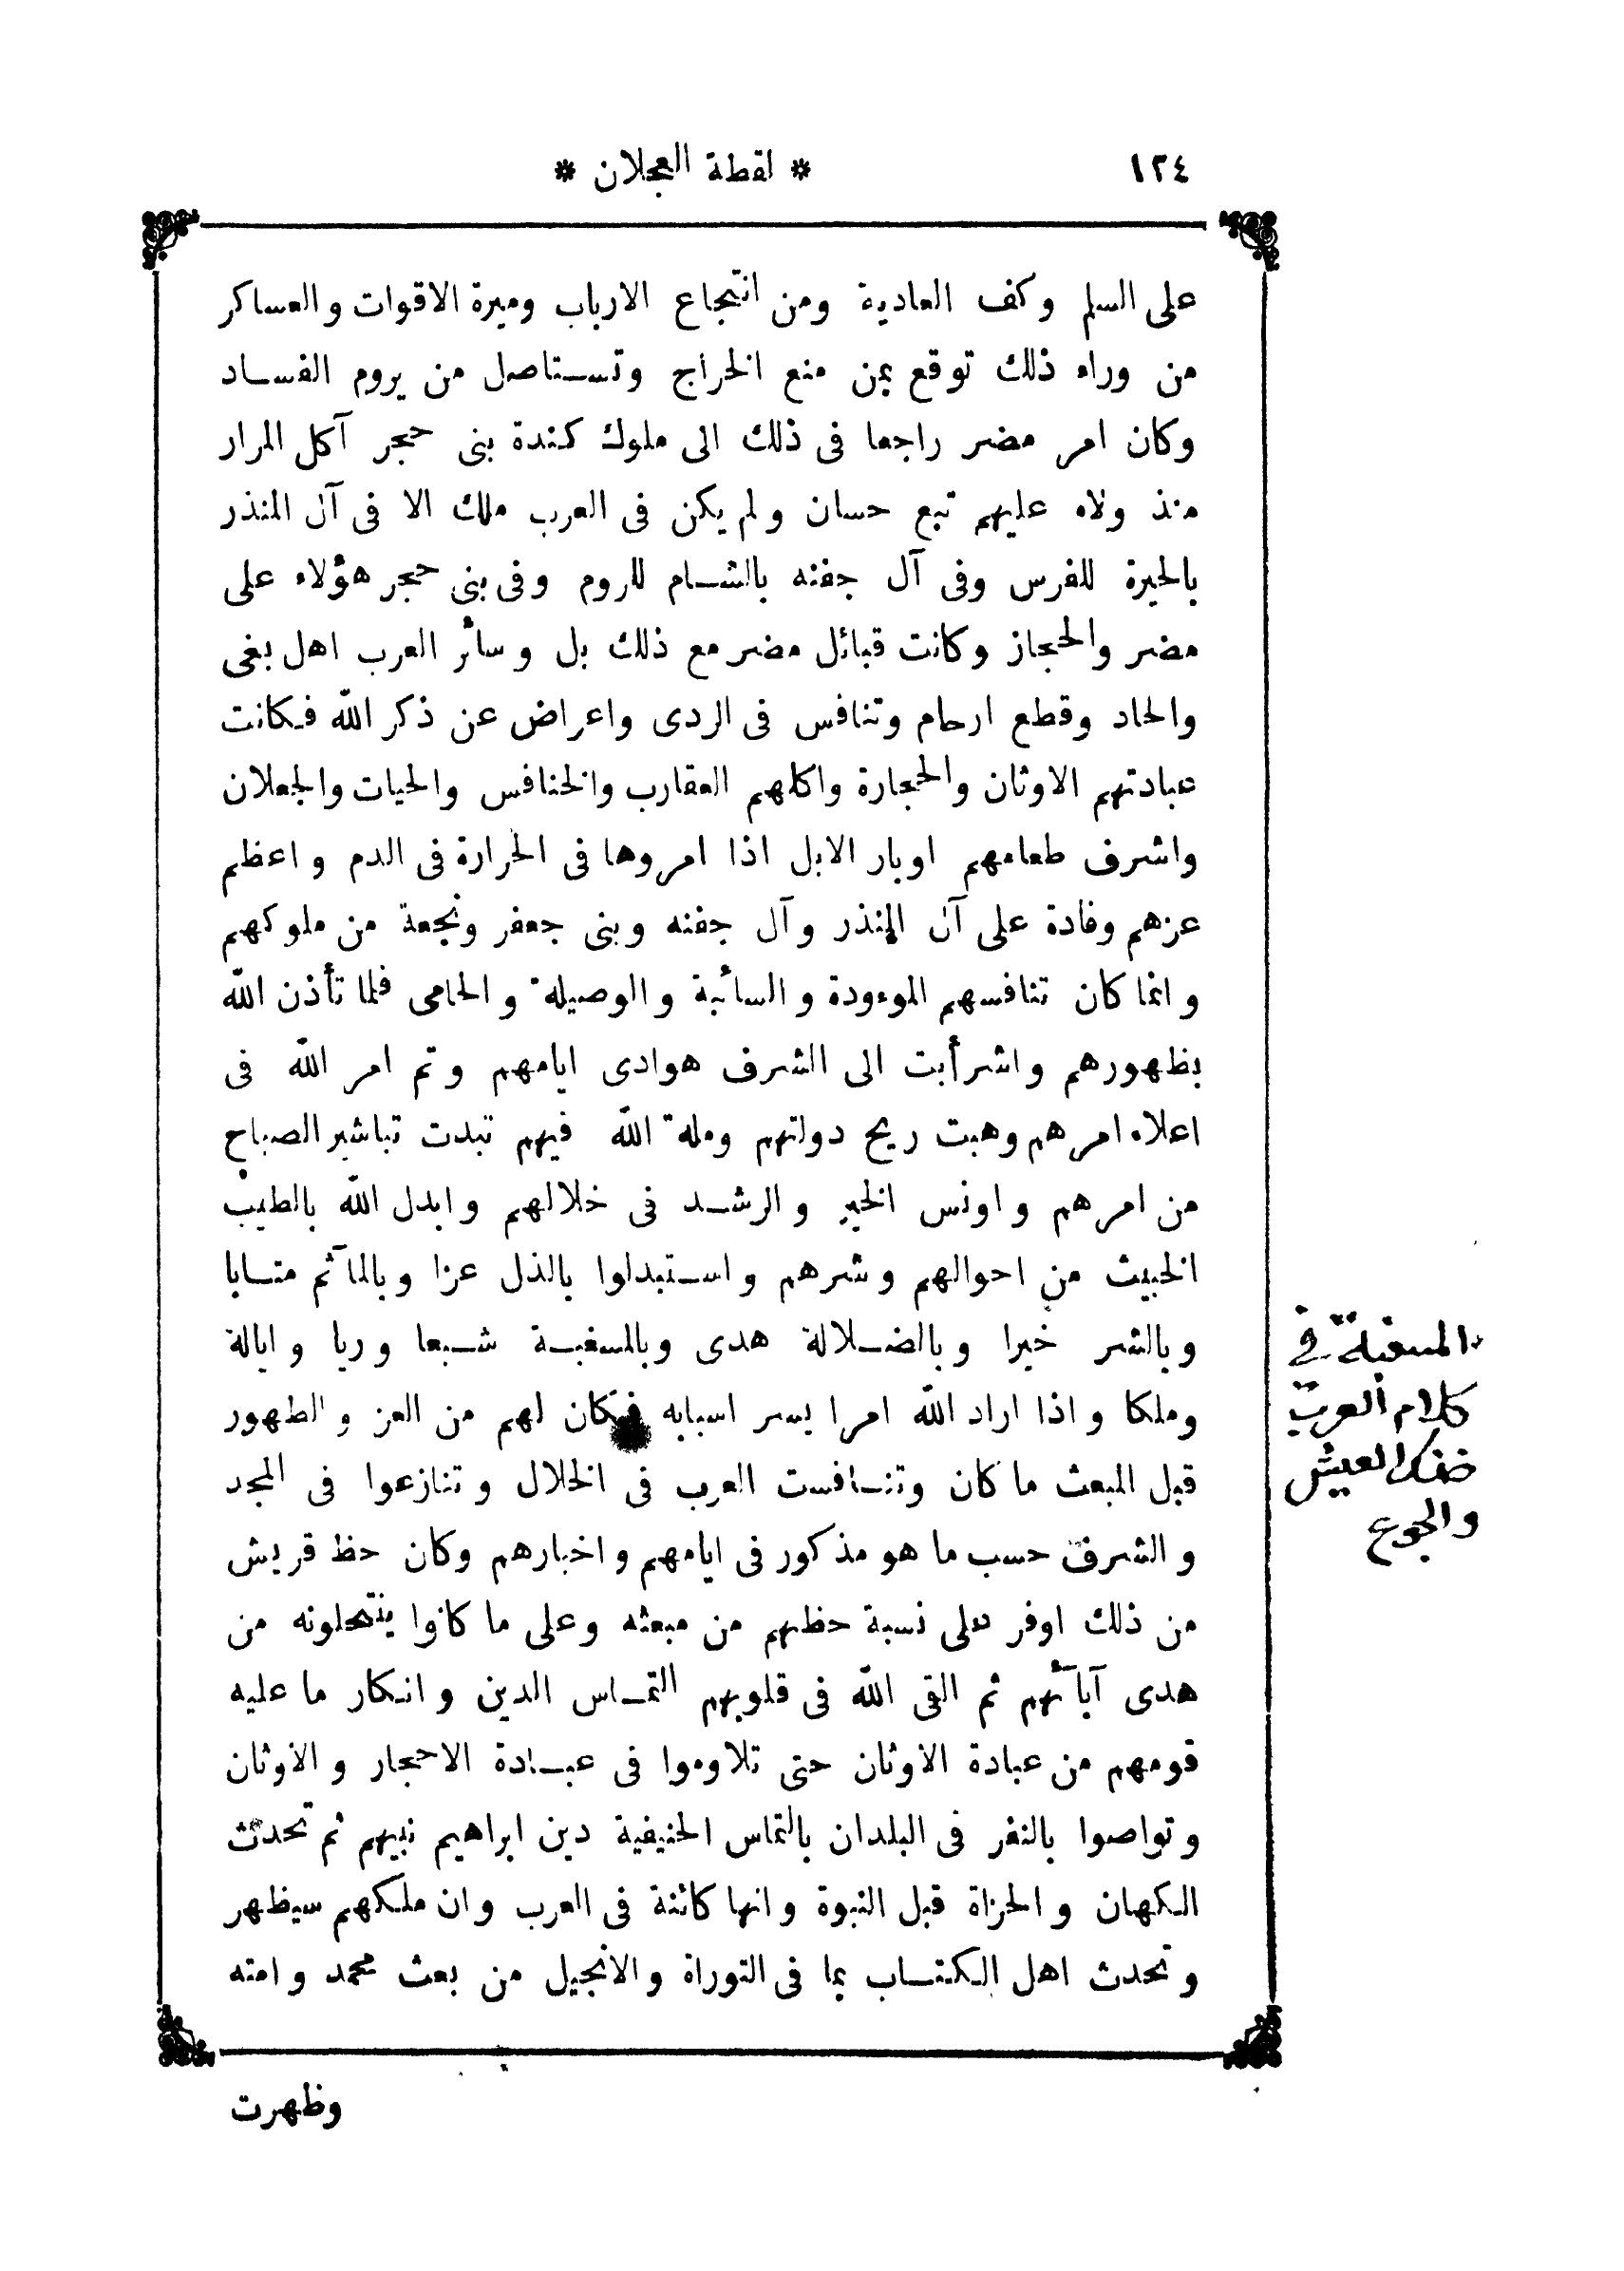 ١٢٤
* لقطة العجلان *
على السلم وكف العادية ومن انتجاع الارباب وميرة الاقوات والعساكر
من وراء ذلك توقع بمن منع الخراج وتستاصل من يروم الفساد
وكان امر مضر راجعا فى ذلك الى ملوك كندة بنى حجر آكل المرار
منذ ولاه عليهم تبع حسان ولم يكن فى العرب ملك الا فى آل المنذر
بالحيرة للفرس وفى آل جفنه بالشام للروم وفى بنى حجر هؤلاء على
مضر والحجاز وكانت قبائل مضر مع ذلك بل وسائر العرب اهل بغى
والحاد وقطع ارحام وتنافس فى الردى واعراض عن ذكر الله فكانت
عبادتهم الاوثان والحجارة واكلهم العقارب والخنافس والحيات والجعلان
واشرف طعامهم اوبار الابل اذا امروها فى الحرارة فى الدم واعظم
عزهم وفادة على آل المنذر وآل جفنه وبنى جعفر ونجعة من ملوكهم
وانما كان تنافسهم الموءودة والسائبة والوصيلة والحامى فلما تأذن الله
بظهورهم واشرأبت الى الشرف هوادى ايامهم وتم امر الله فى
اعلاء امرهم وهبت ريح دولتهم وملة الله فيهم تبدت تباشير الصباح
من امرهم واونس الخير والرشد فى خلالهم وابدل الله بالطيب
الخبيث من احوالهم وشرهم واستبدلوا بالذل عزا وبالمآثم متابا
وبالشر خيرا وبالضلالة هدى وبالمسغبة شبعا وريا وايالة
وملكا واذا اراد الله امرا يسر اسبابه فكان لهم من العز والظهور
قبل المبعث ما كان وتنافست العرب فى الخلال وتنازعوا فى المجد
والشرف حسب ما هو مذكور فى ايامهم واخبارهم وكان حظ قريش
من ذلك اوفر على نسبة حظهم من مبعثه وعلى ما كانوا ينتحلونه من
هدى آبآئهم ثم القى الله فى قلوبهم التماس الدين وانكار ما عليه
قومهم من عبادة الاوثان حتى تلاوموا فى عبادة الاحجار والاوثان
وتواصوا بالنفر فى البلدان بالتماس الحنيفية دين ابراهيم نبيهم ثم تحدث
الكهان والحزاة قبل النبوة وانها كائنة فى العرب وان ملكهم سيظهر
وتحدث اهل الكتاب بما فى التوراة والانجيل من بعث محمد وامته
وظهرت
المسغبة في
كلام العرب
ضنك العيش
والجوع